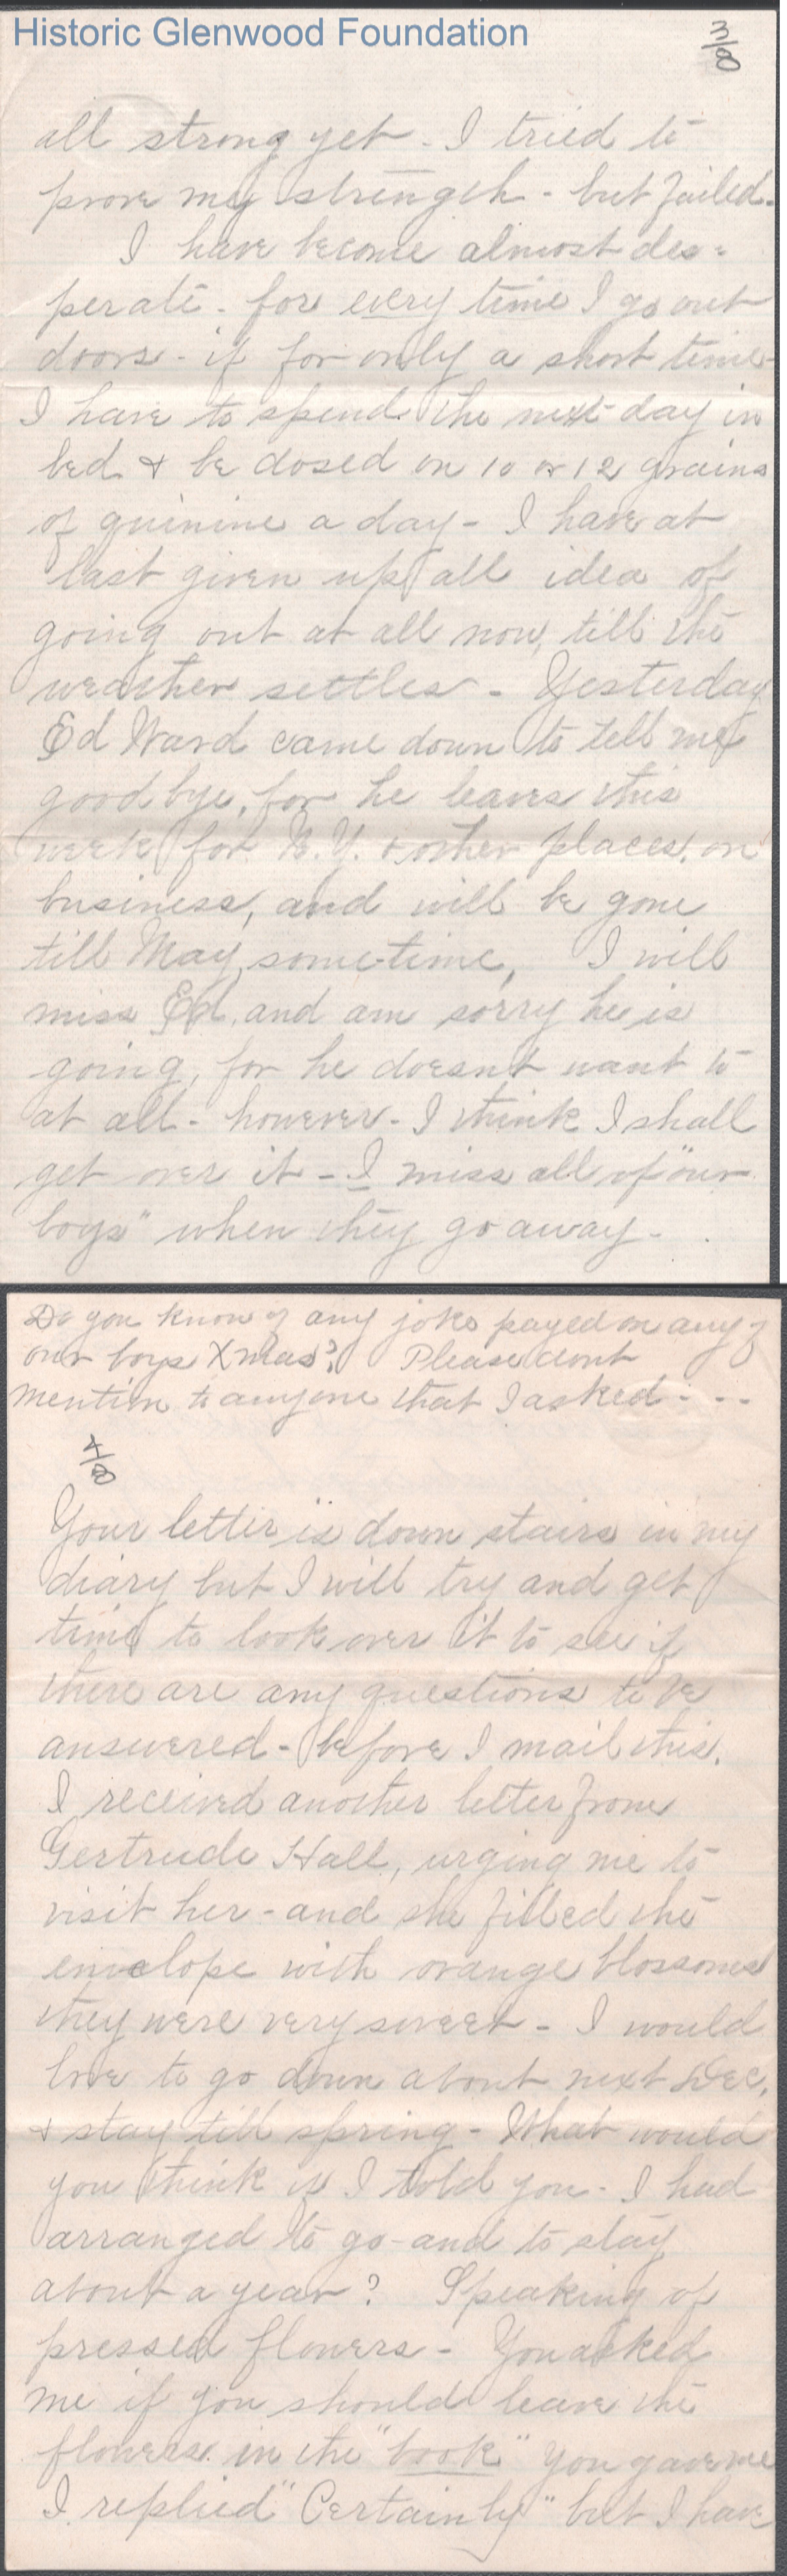 Historic Glenwood Foundation
3/8
all strong yet - I tried to
prove my strength - but failed -
I have become almost des=
perate - for every time I go out
doors - if for only a short time -
I have to spend the next day in
bed & be dosed on 10 or 12 grains
of quinine a day - I have at
last given up all idea of
going out at all now, till the
weather settles - Yesterday
Ed Ward came down to tell me
goodbye, for he leaves this
week for N.Y. & other places, on
business, and will be gone
till May sometime, I will
miss Ed, and am sorry he is
going, for he doesn't want to
at all - however - I think I shall
get over it - I miss all of "our
boys" when they go away -
Do you know of any joke payed on any of
our boys Xmas? Please dont
mention to anyone that I asked - - -
4/8
Your letter is down stairs in my
diary but I will try and get
time to look over it to see if
there are any questions to be
answered - before I mail this.
I received another letter from
Gertrude Hall, urging me to
visit her - and she filled the
envelope with orange blossoms
they were very sweet - I would
love to go down about next Dec,
& stay till spring - What would
you think if I told you - I had
arranged to go - and to stay
about a year? Speaking of
pressed flowers - You asked
me if you should leave the
flowers in the "book" you gave me
I replied "Certainly" but I have